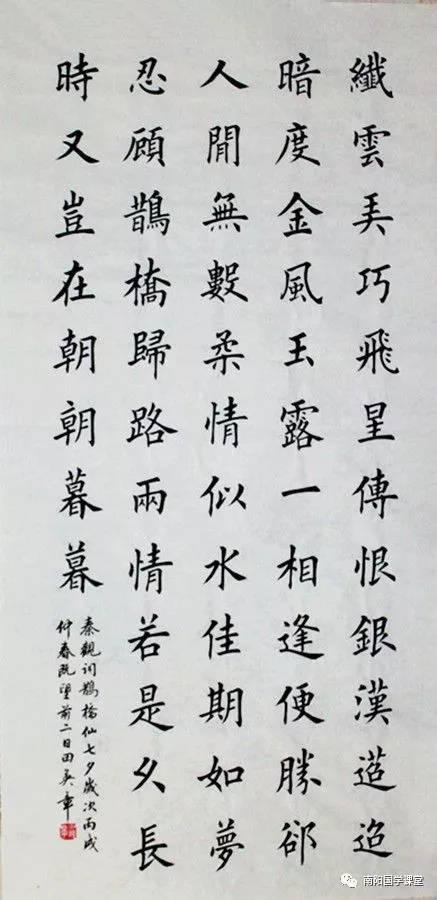 纖雲弄巧飛星傳恨銀漢迢迢
暗度金風玉露一相逢便勝卻
人閒無數柔情似水佳期如夢
忍顧鵲橋歸路兩情若是久長
時又豈在朝朝暮暮
秦觀词鵲橋仙七夕歲次丙戌
仲春既望前二日田英章
南阳国学课堂